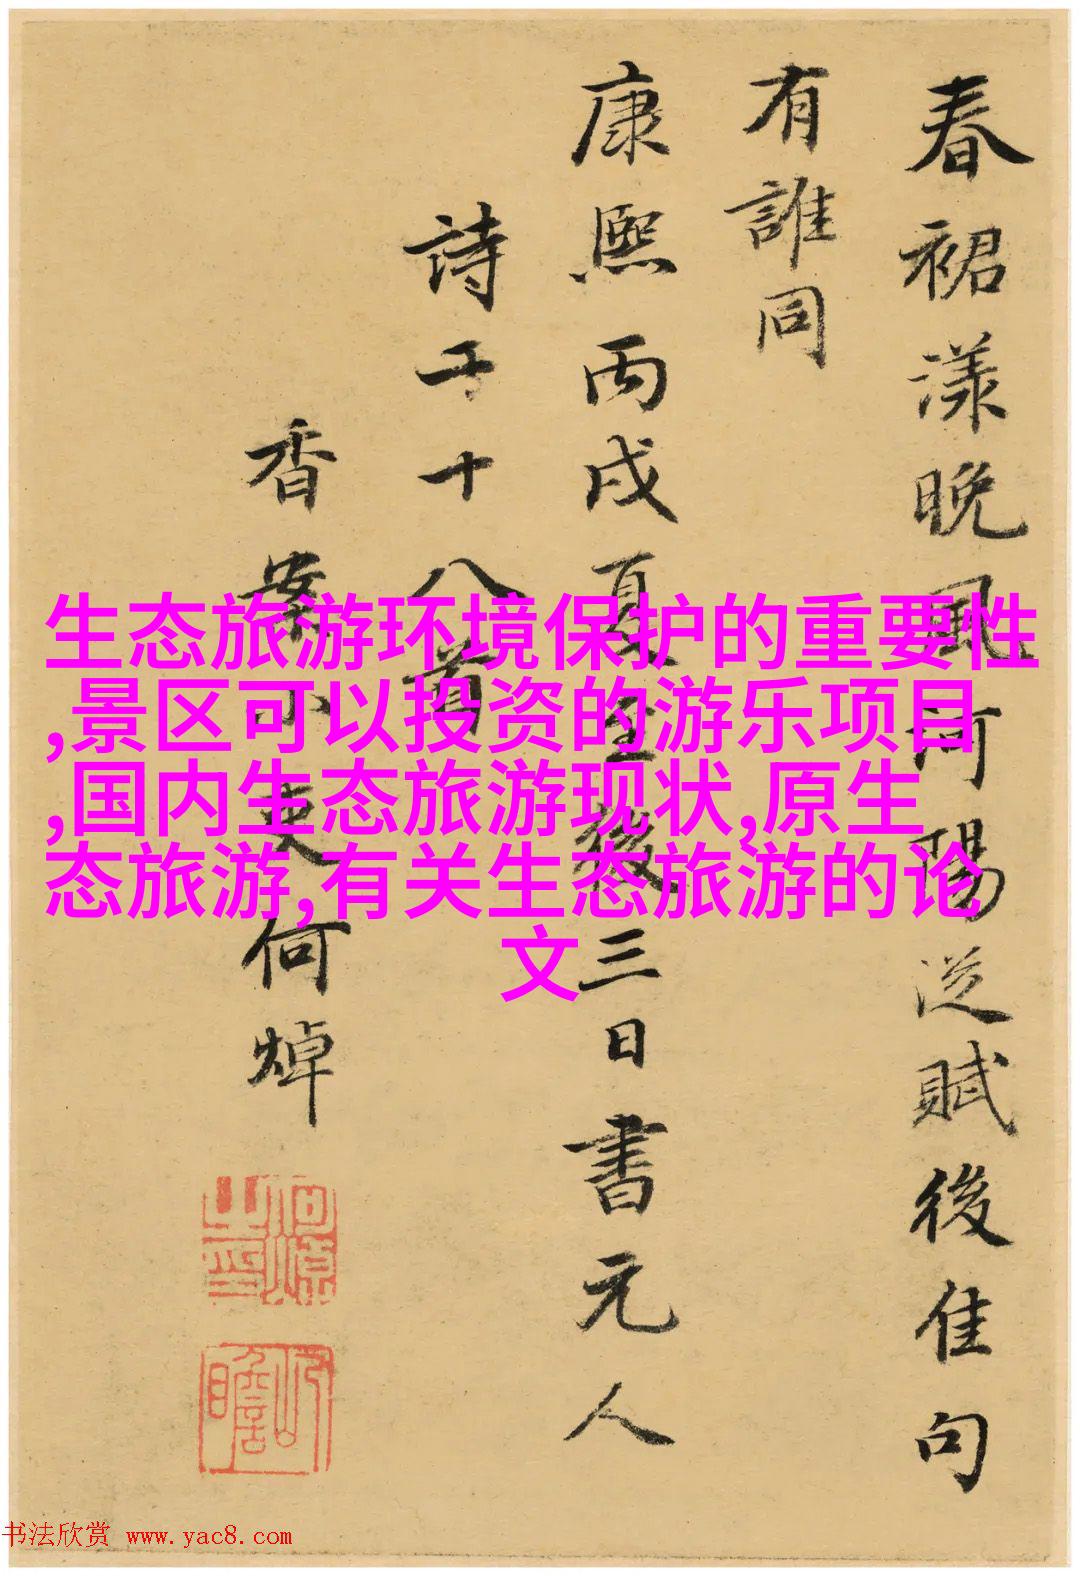 春裙漾晚風河陽從賦後佳句
有誰同
康熙丙戌夏至後三日書元人
詩十八首
香案小吏何焯
何焯之印
屺瞻
生态旅游环境保护的重要性
,景区可以投资的游乐项目
,国内生态旅游现状,原生
态旅游,有关生态旅游的论
文
书法欣赏 www.yac8.com